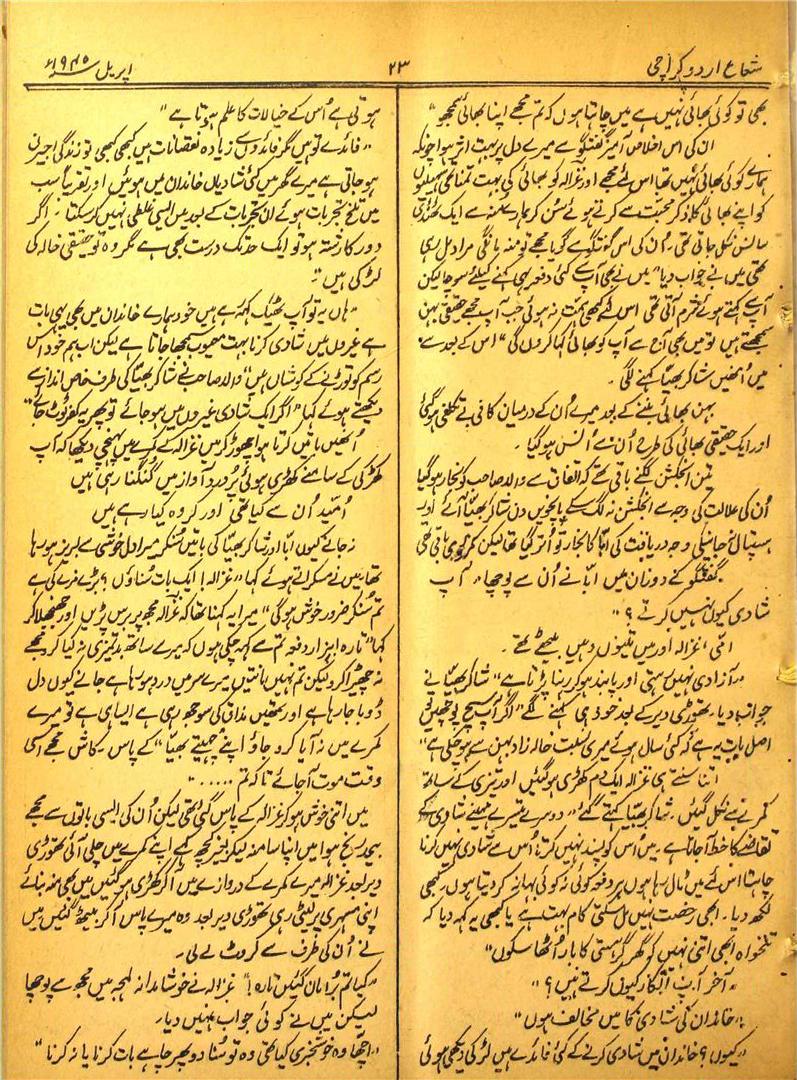 شعاع اردو کراچی
۲۳
اپریل سنہ ۱۹۴۵ء
بھی تو کوئی بھائی نہیں ہے میں چاہتا ہوں کہ تم مجھے اپنا بھائی سمجھو"
ان کی اس اخلاص آمیز گفتگو سے میرے دل پر بہت اثر ہوا چونکہ
ہمارے کوئی بھائی نہیں تھا اس لئے مجھے اور غزالہ کو بھائی کی بہت تمنا تھی سہیلیوں
کو اپنے بھائی کا ذکر محبت سے کرتے ہوئے سن کر ہمارے سینہ سے ایک ٹھنڈی
سانس نکل جاتی تھی۔ اُن کی اس گفتگو سے گویا مجھے تو منہ مانگی مراد مل رہی
تھی میں نے جواب دیا "میں نے بھی آپ سے کئی دفعہ یہی کہنے کیلئے سوچا لیکن
آپ سے کہتے ہوئے شرم آتی تھی اس لئے کبھی ہمت نہ ہوئی جب آپ مجھے حقیقی بہن
سمجھتے ہیں تو میں بھی آج سے آپ کو بھائی کہا کروں گی" اس کے بعد سے
میں اُنھیں شاکر بھیّا کہنے لگی۔
بہن بھائی بننے کے بعد میرے اُن کے درمیان کافی بے تکلفی ہوگئی
اور ایک حقیقی بھائی کی طرح اُن سے اُنس ہو گیا۔
تین انجکشن لگنے باقی تھے کہ اتفاق سے والد صاحب کو بخار ہو گیا
اُن کی علالت کی وجہ سے انجکشن نہ لگ سکے پانچویں دن شاکر بھیّا آئے اور
ہسپتال نہ جانیکی وجہ دریافت کی ابّا کا بخار تو اُتر گیا تھا لیکن کمزوری باقی تھی
گفتگو کے دوران میں ابّا نے اُن سے پوچھا "آپ
شادی کیوں نہیں کرتے ؟"
امّی، غزالہ اور میں تینوں وہیں بیٹھے تھے۔
"آزادی نہیں رہتی اور پابند ہو کر رہنا پڑتا ہے" شاکر بھیّا نے
جواب دیا۔ تھوڑی دیر کے بعد خود ہی کہنے لگے "اگر آپ سچ پوچھیں تو
اصل بات یہ ہے کہ کئی سال ہوئے میری نسبت خالہ زاد بہن سے ہو چکی ہے"
اتنا سنتے ہی غزالہ ایک دم کھڑی ہو گئیں اور تیزی کے ساتھ
کمرے سے نکل گئیں۔ شاکر بھیّا کہتے گئے "دوسرے تیسرے مہینے شادی کے
تقاضے کا خط آجاتا ہے۔ میں اس کو پسند نہیں کرتا، اُس سے شادی نہیں کرنا
چاہتا اس لئے میں ٹال رہا ہوں ہر دفعہ کوئی نہ کوئی بہانہ کر دیتا ہوں۔ کبھی
لکھ دیا۔ ابھی رخصت نہیں مل سکتی کام بہت ہے یا کبھی یہ کہہ دیا کہ
تنخواہ ابھی اتنی نہیں کہ گھر گرہستی کا بار اُٹھا سکوں"
"آخر آپ انکار کیوں کرتے ہیں ؟"
"خاندان کی شادی کا میں مخالف ہوں"
"کیوں؟ خاندان میں شادی کرنے کے کئی فائدے ہیں لڑکی دیکھی ہوئی
ہوتی ہے اُس کے خیالات کا علم ہوتا ہے"
"فائدے تو ہیں مگر فائدوں سے زیادہ نقصانات ہیں کبھی کبھی تو زندگی اجیرن
ہو جاتی ہے میرے گھر میں کئی شادیاں خاندان میں ہوئیں اور تقریباً سب
میں تلخ تجربات ہوئے ان تجربات کے بعد میں ایسی غلطی نہیں کر سکتا۔ اگر
دور کا رشتہ ہو تو ایک حد تک درست بھی ہے مگر وہ تو حقیقی خالہ کی
لڑکی ہیں"
"ہاں یہ تو آپ ٹھیک کہتے ہیں خود ہمارے خاندان میں بھی یہی بات
ہے غیروں میں شادی کرنا بہت معیوب سمجھا جاتا ہے لیکن اب ہم خود اس
رسم کو توڑنے کے کوشاں ہیں" والد صاحب نے شاکر بھیّا کی طرف خاص انداز سے
دیکھتے ہوئے کہا "اگر ایک شادی غیروں میں ہو جائے تو پھر یہ کفر ٹوٹ جائے"
اُنھیں باتیں کرتا ہوا چھوڑ کر میں غزالہ کے کمرے میں پہنچی دیکھا کہ آپ
کھڑکی کے سامنے کھڑی ہوئی پُر درد آواز میں گنگنا رہی ہیں
اُمید اُن سے کیا تھی اور کر وہ کیا رہے ہیں
نہ جانے کیوں ابّا اور شاکر بھیّا کی باتیں سنکر میرا دل خوشی سے لبریز ہو رہا
تھا میں نے مسکراتے ہوئے کہا "غزالہ! ایک بات سُناؤں؟ بڑے مزے کی ہے
تم سُنکر ضرور خوش ہوگی" میرا یہ کہنا تھا کہ غزالہ مجھ پر برس پڑیں اور جھنجھلا کر
کہا "تارہ ہزار دفعہ تم سے کہہ چکی ہوں کہ میرے ساتھ بدتمیزی نہ کیا کرو مجھے
نہ چھیڑا کرو لیکن تم نہیں مانتیں میرے سر میں درد ہو رہا ہے جانے کیوں دل
ڈوبا جا رہا ہے اور تمھیں مذاق کی سوجھ رہی ہے ایسا ہی ہے تو میرے
کمرے میں نہ آیا کرو جاؤ اپنے چہیتے بھیّا" کے پاس۔ کاش مجھے اسی
وقت موت آجائے تاکہ تم ....."
میں اتنی خوش ہو کر غزالہ کے پاس گئی تھی لیکن اُن کی ایسی باتوں سے مجھے
بیحد رنج ہوا میں اپنا سا منہ لیکر بغیر کچھ کہے اپنے کمرے میں چلی آئی تھوڑی
دیر بعد غزالہ میرے کمرے کے دروازے میں آکر کھڑی ہو گئیں میں بھی منہ بنائے
اپنی مسہری پر لیٹی رہی تھوڑی دیر بعد وہ میرے پاس آکر بیٹھ گئیں میں
نے اُن کی طرف سے کروٹ لے لی۔
"کیا تم بُرا مان گئیں تارہ!" غزالہ نے خوشامدانہ لہجہ میں مجھ سے پوچھا
لیکن میں نے کوئی جواب نہیں دیا۔
"اچھا وہ خوشخبری کیا تھی وہ تو سُنا دو پھر چاہے بات کرنا یا نہ کرنا"